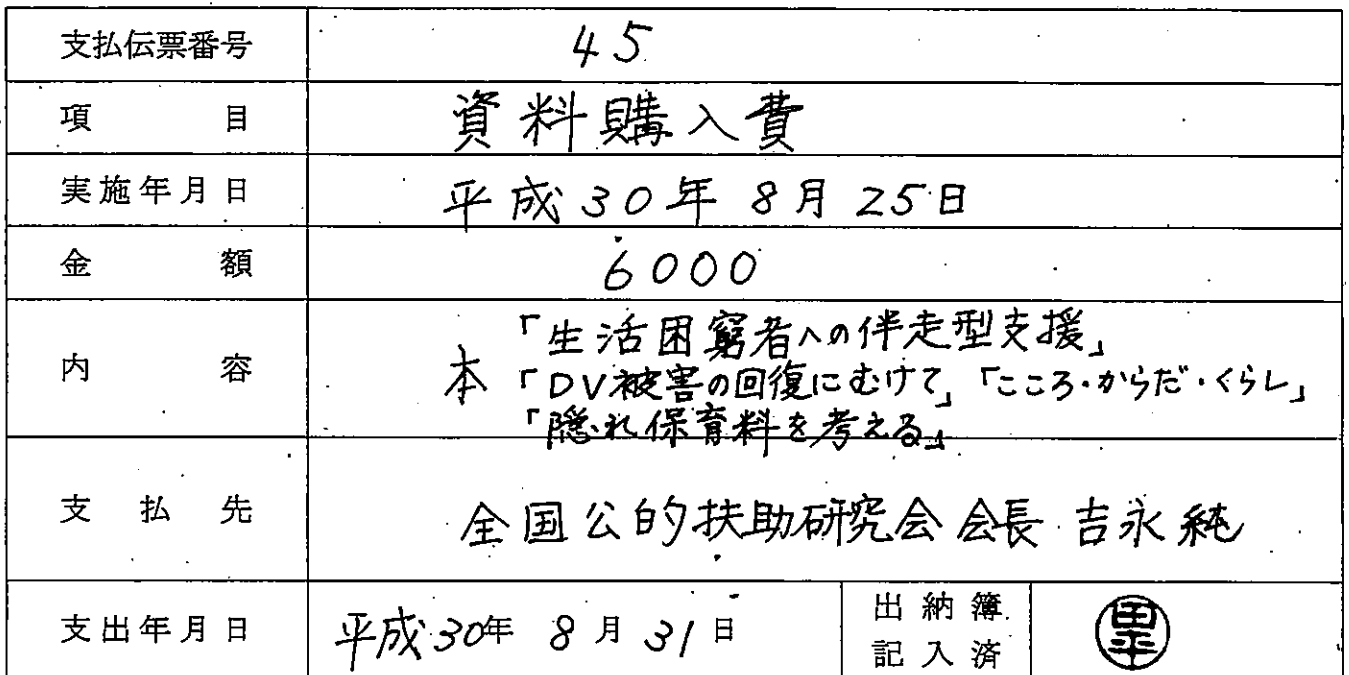 支払伝票番号 45
項目 資料購入費
実施年月日 平成30年8月25日
金額 6000
「生活困窮者への伴走型支援」
内容 本「DV被害の回復にむけて」「こころ・からだ・くらし」
「隠れ保育料を考える」
支払先 全国公的扶助研究会 会長 吉永純
支出年月日 平成30年8月31日 出納簿記入済 田平